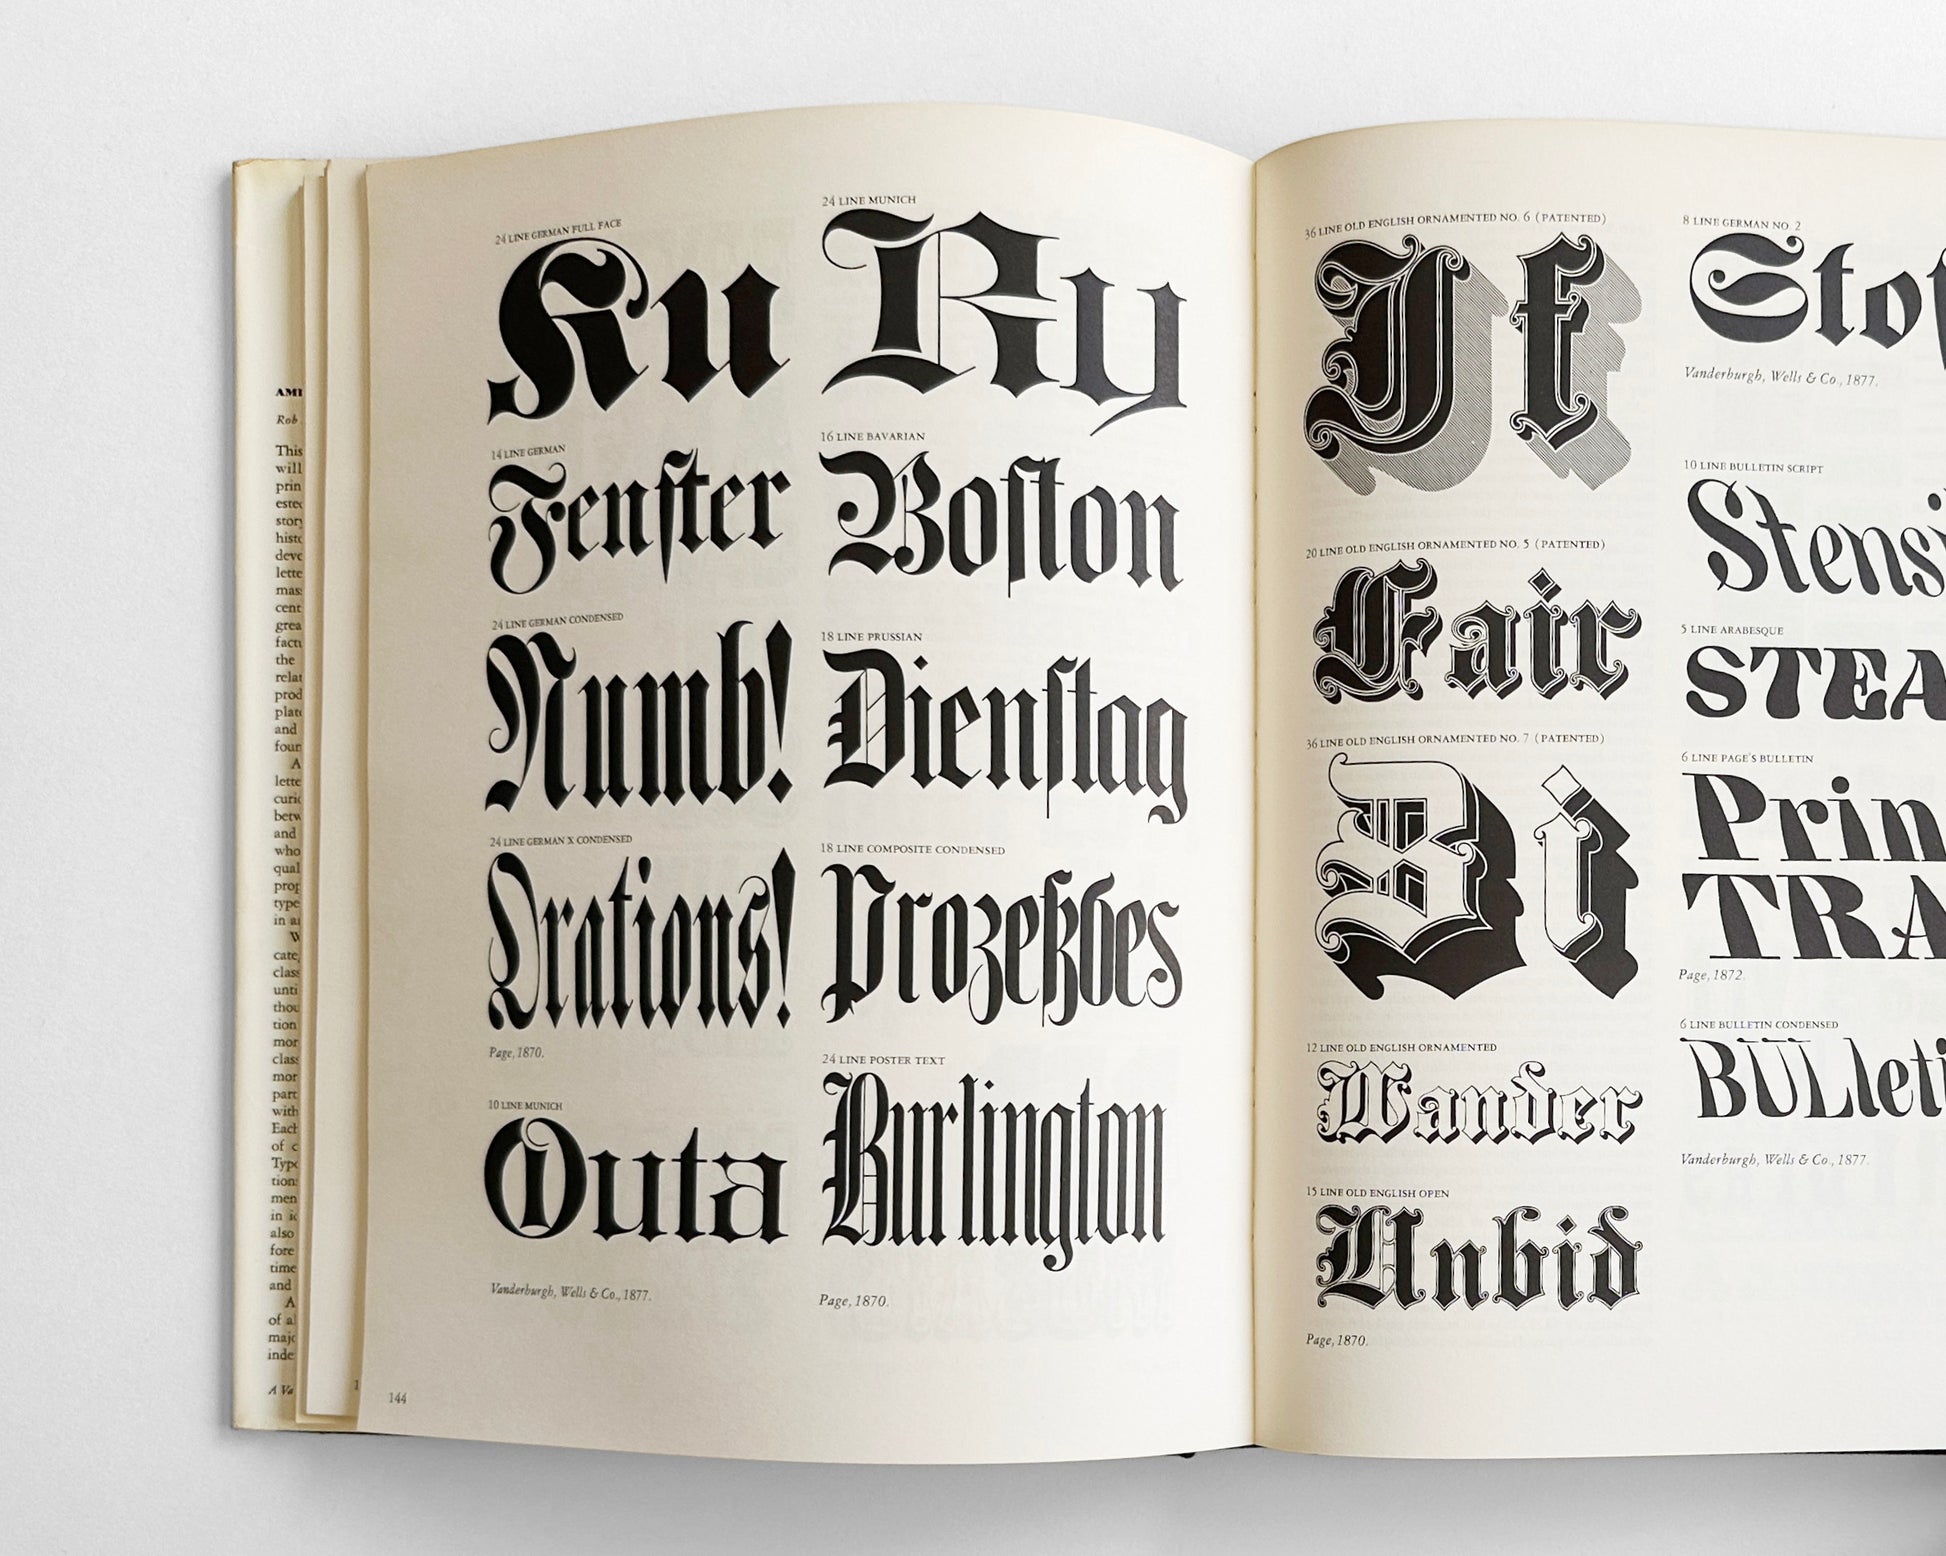 AM
Rob
This
will
prin
este
stor
histo
deve
lette
mas
cent
grea
factu
the
relat
prod
plate
and
foun
A
lette
curio
betw
and
who
qual
prop
type
in a
W
cate
class
unti
thou
tion
mor
class
mor
part
with
Each
of c
Type
tion
men
in
also
fore
time
and
A
of al
majo
inde
A Va
24 LINE GERMAN FULL FACE
Ku
14 LINE GERMAN
Fenſter
24 LINE GERMAN CONDENSED
Numb!
24 LINE GERMAN X CONDENSED
Orations!
Page, 1870.
10 LINE MUNICH
Outa
Vanderburgh, Wells & Co., 1877.
144
24 LINE MUNICH
Ry
16 LINE BAVARIAN
Boſton
18 LINE PRUSSIAN
Dienſtag
18 LINE COMPOSITE CONDENSED
Prozeßdes
24 LINE POSTER TEXT
Burlington
Page, 1870.
36 LINE OLD ENGLISH ORNAMENTED NO. 6 (PATENTED)
It
20 LINE OLD ENGLISH ORNAMENTED NO. 5 (PATENTED)
Fair
36 LINE OLD ENGLISH ORNAMENTED NO. 7 (PATENTED)
Bi
12 LINE OLD ENGLISH ORNAMENTED
Wander
15 LINE OLD ENGLISH OPEN
Unbid
Page, 1870.
8 LINE GERMAN NO. 2
Sto
Vanderburgh, Wells & Co., 1877.
10 LINE BULLETIN SCRIPT
Stensi
5 LINE ARABESQUE
STEA
6 LINE PAGE'S BULLETIN
Prin
TRA
Page, 1872.
6 LINE BULLETIN CONDENSED
BULleti
Vanderburgh, Wells & Co., 1877.